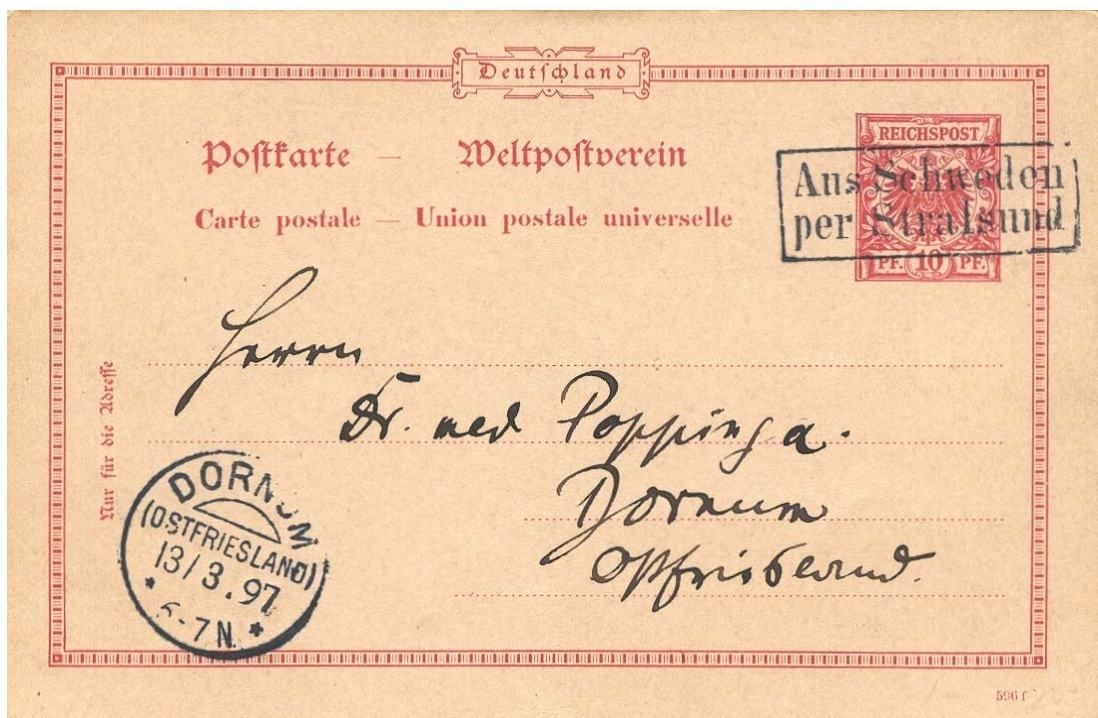 Deutschland
Postkarte — Weltpostverein
Carte postale — Union postale universelle
REICHSPOST
PF. 10 PF.
Aus Schweden
per Stralsund
Nur für die Adresse
Herrn
Dr. med Poppinga.
Dornum
Ostfriesland.
DORNUM
(OSTFRIESLAND)
13/3.97
* 6-7N. *
596 f